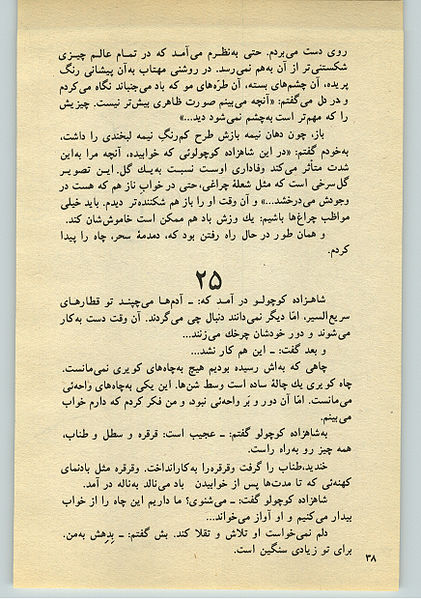 روی دست می‌بردم. حتی به‌نظرم می‌آمد که در تمام عالم چیزی
شکستنی‌تر از آن به‌هم نمی‌رسد. در روشنی مهتاب به‌آن پیشانی رنگ
پریده، آن چشم‌های بسته، آن طره‌های مو که باد می‌جنباند نگاه می‌کردم
و در دل می‌گفتم: «آنچه می‌بینم صورت ظاهری بیش‌تر نیست. چیزیش
را که مهم‌تر است به‌چشم نمی‌شود دید...»
باز، چون دهان نیمه بازش طرح کم‌رنگِ نیمه لبخندی را داشت،
به‌خودم گفتم: «در این شاهزاده کوچولوئی که خوابیده، آنچه مرا به‌این
شدت متأثر می‌کند وفاداری اوست نسبت به‌یك گل. این تصویر
گل‌سرخی است که مثل شعلهٔ چراغی، حتی در خوابِ ناز هم که هست در
وجودش می‌درخشد...» و آن وقت او را باز هم شکننده‌تر دیدم. باید خیلی
مواظب چراغ‌ها باشیم: یك وزش باد هم ممکن است خاموش‌شان کند.
و همان طور در حال راه رفتن بود که، دمدمهٔ سحر، چاه را پیدا
کردم.
۲۵
شاهزاده کوچولو در آمد که: ـ آدم‌ها می‌چپند تو قطارهای
سریع‌السیر، امّا دیگر نمی‌دانند دنبال چی می‌گردند. آن وقت دست به‌کار
می‌شوند و دور خودشان چرخك می‌زنند...
و بعد گفت: ـ این هم کار نشد...
چاهی که به‌اش رسیده بودیم هیچ به‌چاه‌های کویری نمی‌مانست.
چاه کویری یك چالهٔ ساده است وسط شن‌ها. این یکی به‌چاه‌های واحه‌ئی
می‌مانست. امّا آن دور و بَر واحه‌ئی نبود، و من فکر کردم که دارم خواب
می‌بینم.
به‌شاهزاده کوچولو گفتم: ـ عجیب است: قرقره و سطل و طناب،
همه چیز رو به‌راه است.
خندید،طناب را گرفت وقرقره‌را به‌کارانداخت. وقرقره مثل بادنمای
کهنه‌ئی که تا مدت‌ها پس از خوابیدن باد می‌نالد به‌ناله در آمد.
شاهزاده کوچولو گفت: ـ می‌شنوی؟ ما داریم این چاه را از خواب
بیدار می‌کنیم و او آواز می‌خواند...
دلم نمی‌خواست او تلاش و تقلا کند. بش گفتم: ـ بِدِهش به‌من.
برای تو زیادی سنگین است.
۳۸